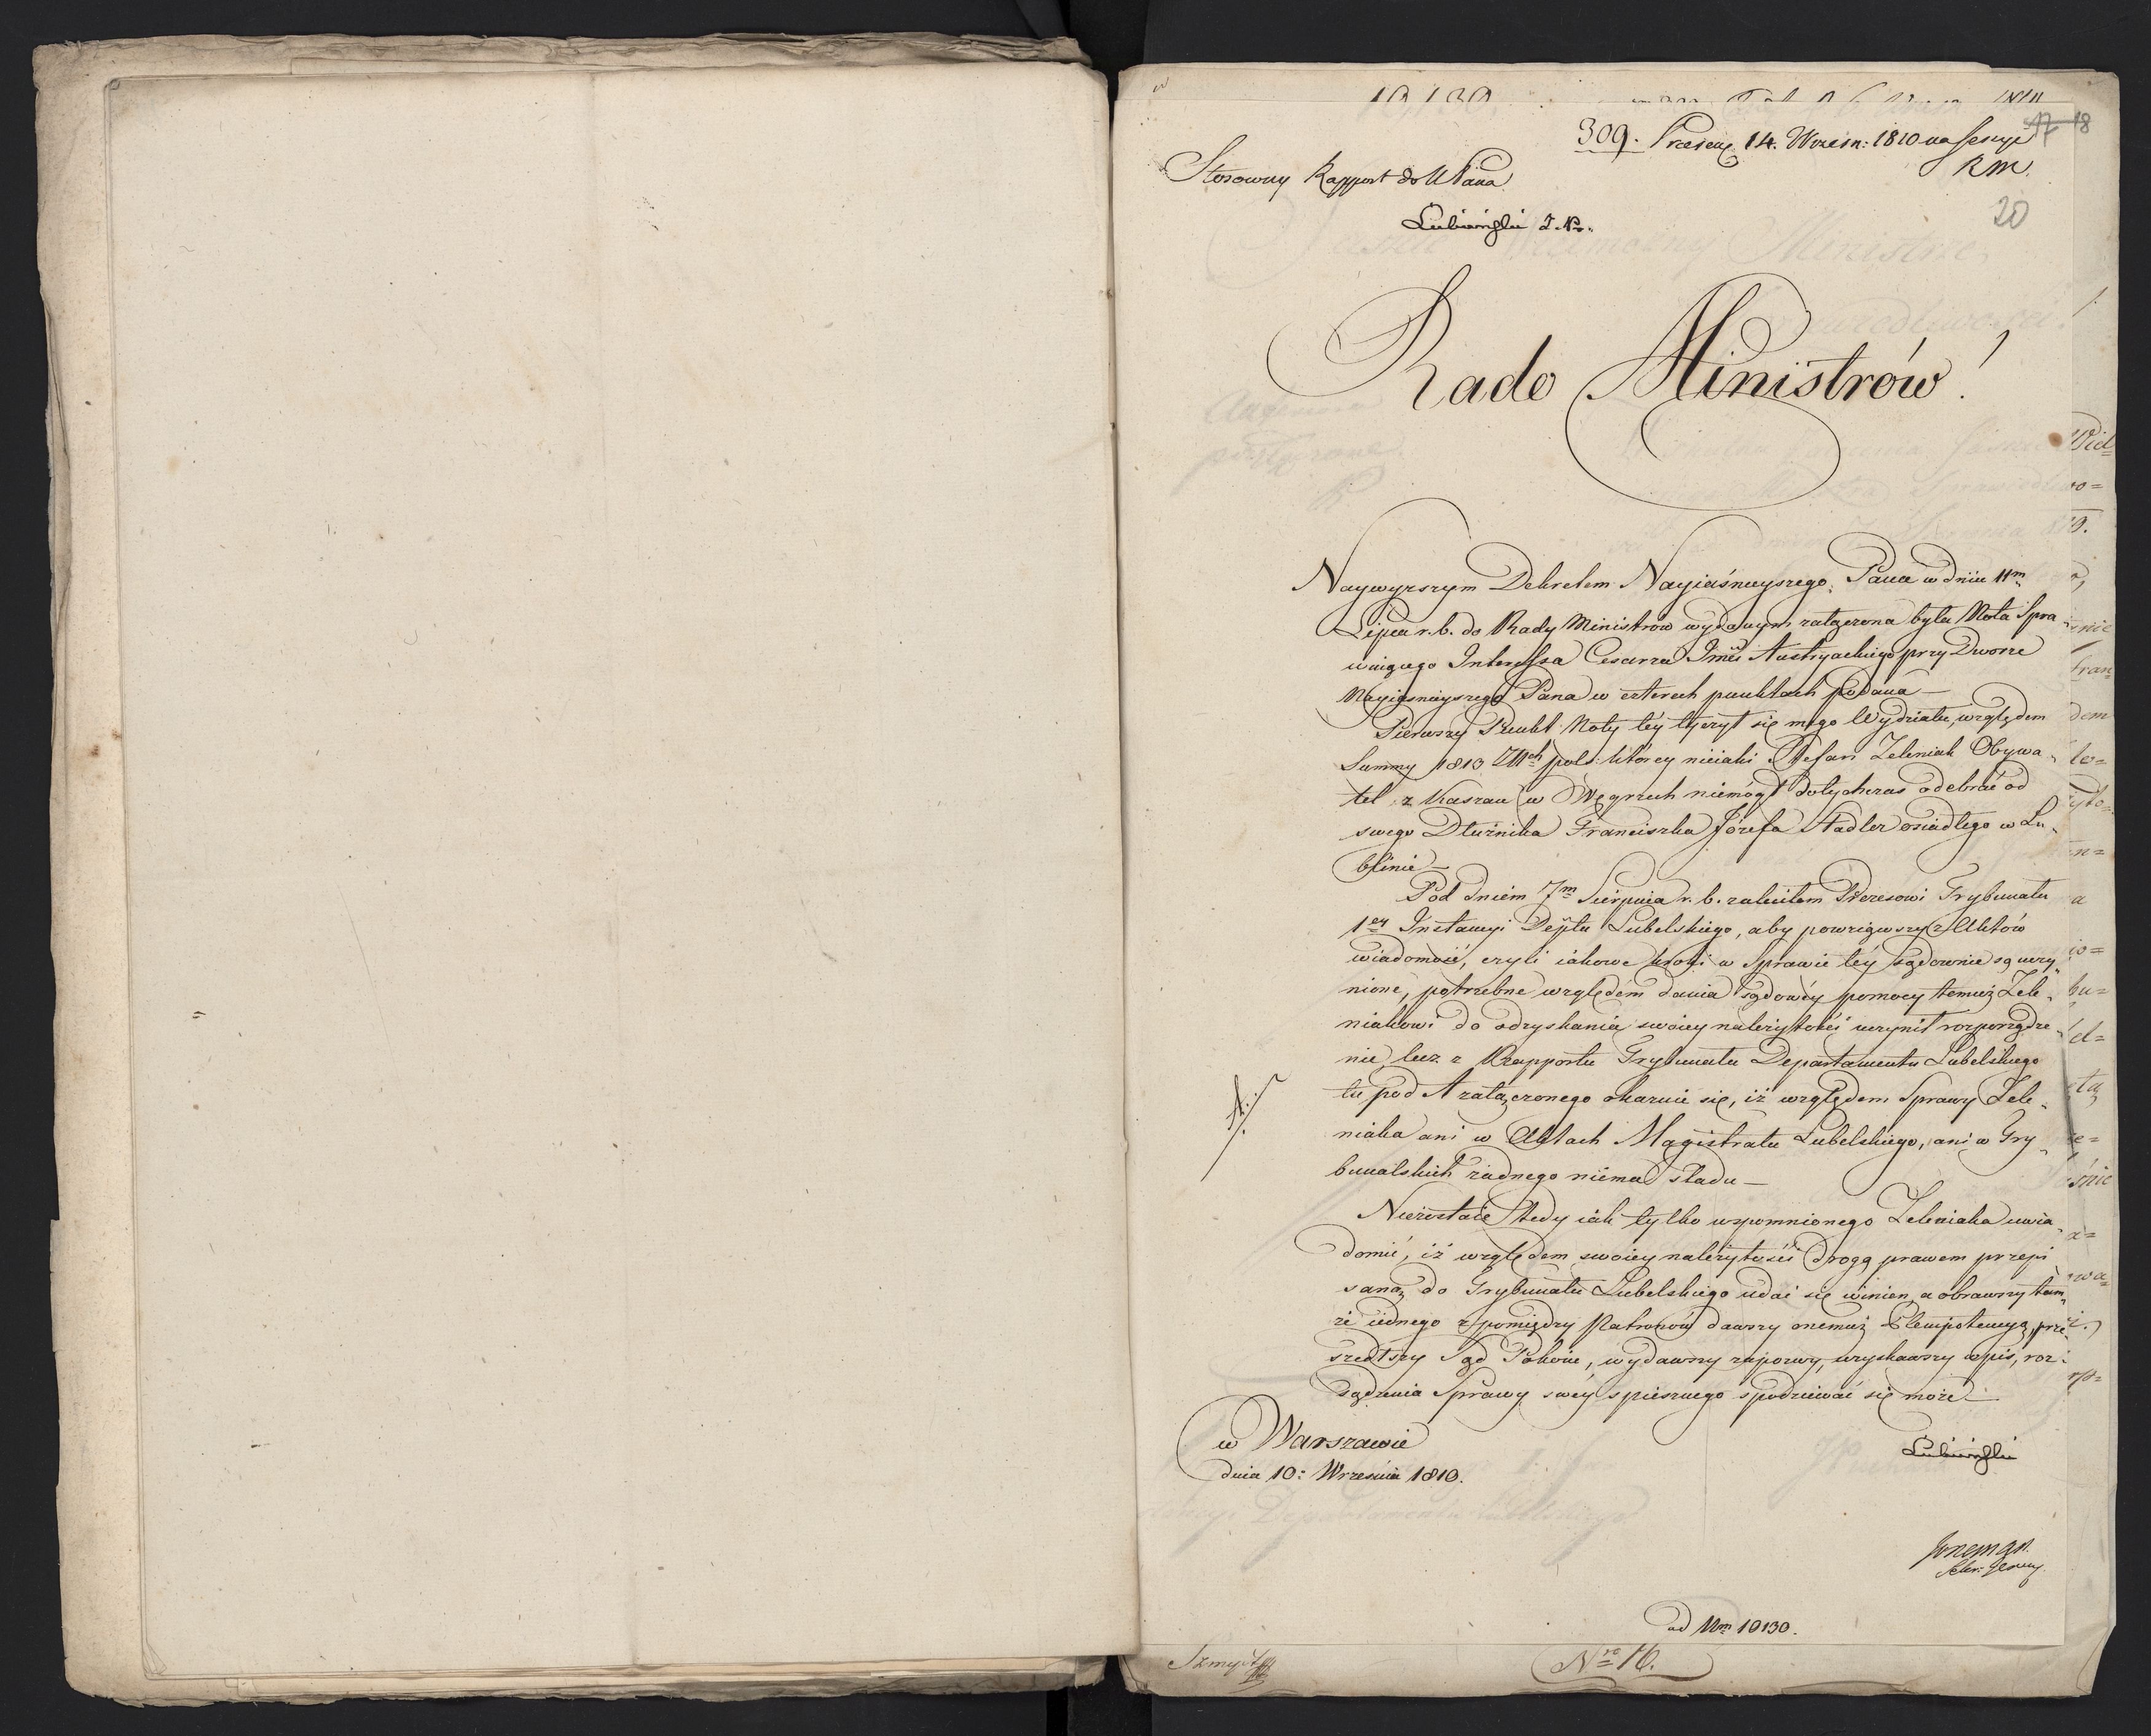 309. Praesent. 14. Wrzesn: 1810 na Sessyi
R M.
17 18
20
Stosowny Rapport do N Pana
Łubieński
Rado Ministrów!
Naywyższym Dekretem Nayiaśnieyszego Pana w dniu 11m
Lipca r. b. do Rady Ministrow wydanym załączona była Nota Spra„
wuiącego Interessa Cesarza Jmci Austryackiego przy Dworze
Nayiaśnieyszego Pana w czterech punktach podana —
Pierwszy Punkt Noty téy tyczył się mego Wydziału, względem
Summy 1813 Złłch pols: którey nieiaki Stefan Zeleniak Obywa„
tel z Kaszau w Węgrzech niemógł dotychczas odebrać od
swego Dłużnika Franciszka Józefa Stadler osiadłego w Lu„
blinie —
Pod dniem 7m Sierpnia r. b. zaleciłem Prezesowi Trybunału
1ey Instancyi Depttu Lubelskiego, aby powziąwszy z Aktów
wiadomość, czyli iakowe kroki w Sprawie téy sądownie są uczy„
nione, potrzebne względem dania sądowéy pomocy temuż Zele„
niakowi do odzyskania swoiey należytości uczynił rozporządze„
nie, lecz z Rapportu Trybunału Departamentu Lubelskiego
tu pod A załączonego okazuie się, iż względem Sprawy Zele„
A./.
niaka ani w Aktach Magistratu Lubelskiego, ani w Try„
bunalskich żadnego niema śladu —
Niezostaie tedy iak tylko wspomnionego Zeleniaka uwia„
domić, iż względem swoiey należytości drogą prawem przepi„
saną do Trybunału Lubelskiego udać się winien, a obrawszy tam„
że iednego z pomiędzy Patronów dawszy onemuż Plenipotencyą, prze„
szedłszy Sąd Pokoiu, wydawszy zapozwy, uzyskawszy wpis, roz„
sądzenia Sprawy swéy spiesznego spodziewać się może —
w Warszawie
dnia 10: Września 1810.
Łubieński
Sekr: Gener
ad Num 10130.
Nro 16.